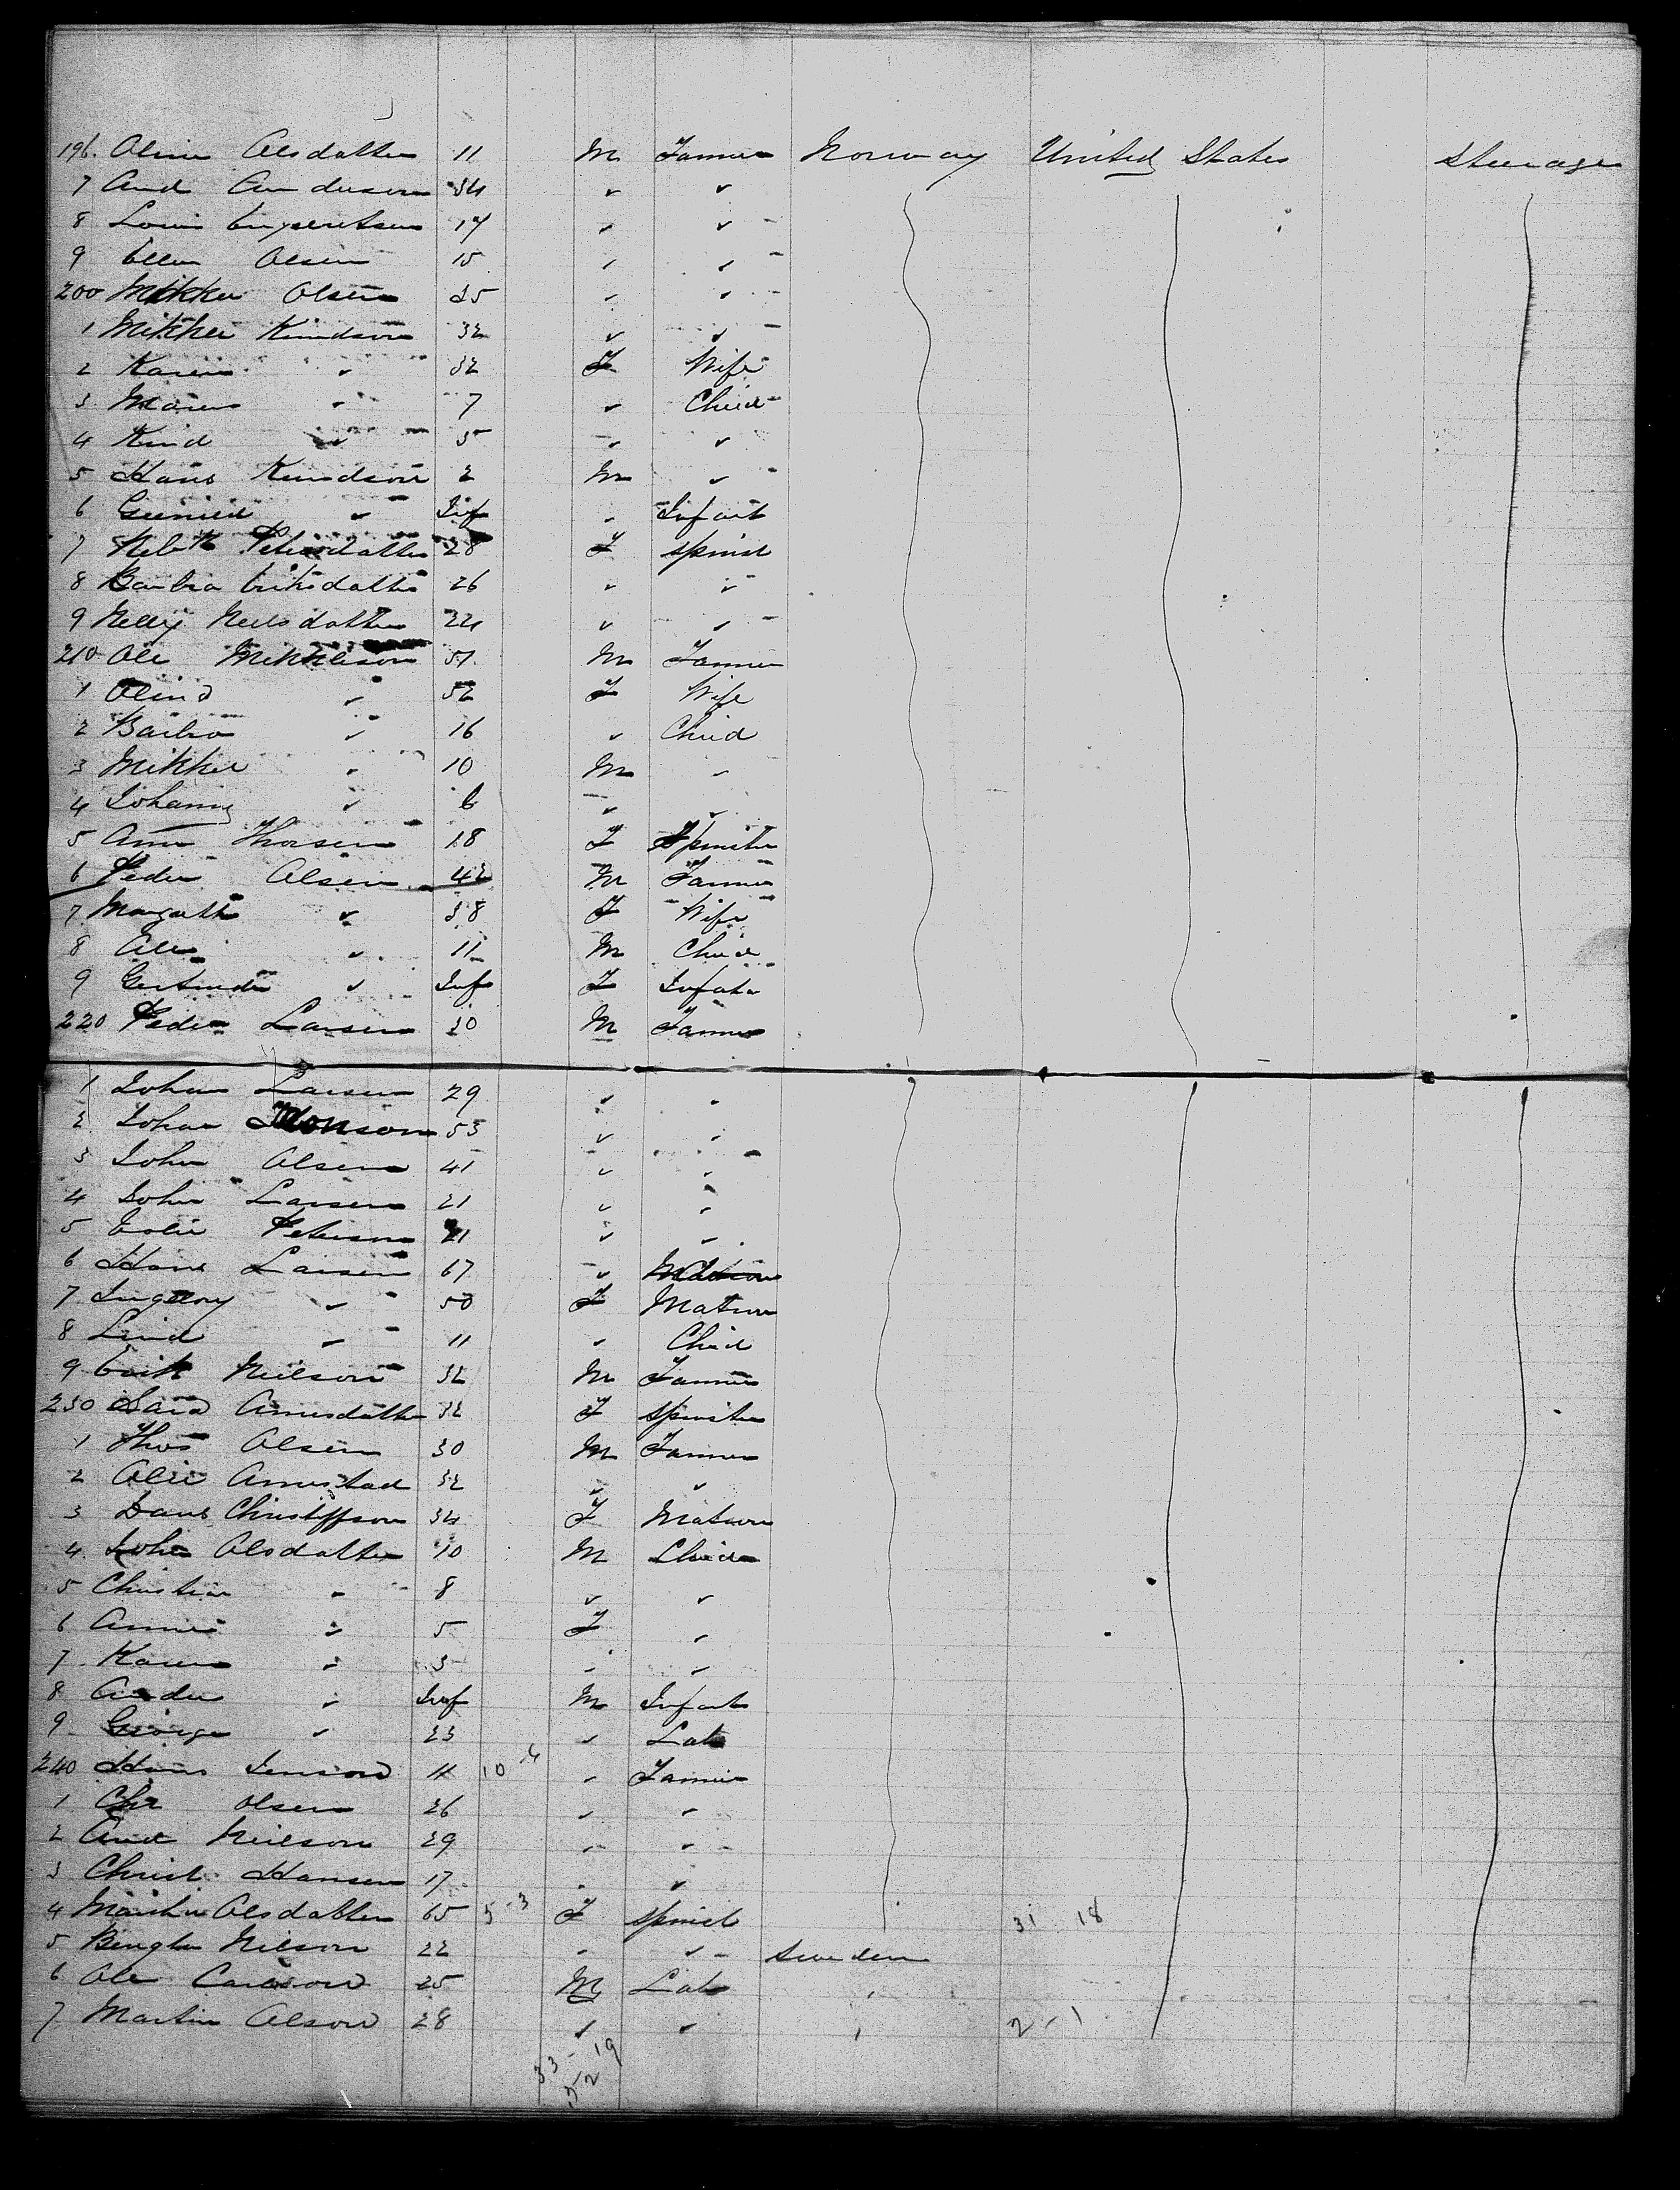 196. Oline Olsdatter 11 M Farmer Norway United States Steerage
7 And Anderson 34 " "
8 Louis Engebretsen 17 " "
9 Ellen Olsen 15 " "
200 Mikkel Olsen 25 " "
1 Mikkel Knudson 32 " "
2 Karen " 32 F Wife
3 Maren " 7 " Child
4 Knud " 5 " "
5 Hans Knudson 2 M "
6 " Inf " Infant
7 Petersdatter 28 F Spinst
8 Barbra Eriksdatter 26 " "
9 Nelly Neilsdatter 24 " "
210 Ole Mikkleson 51 M Farmer
1 Olind " 52 F Wife
2 Barbro " 16 " Child
3 Mikkel " 10 M "
4 Johanny " 6 " "
5 Ann Thorsen 18 F Spinster
6 Peder Olsen 42 M Farmer
7 Margath " 38 F Wife
8 Ole " 11 M Child
9 Gertrude " Inf F Infant
220 Peder Larsen 20 M Farmer
1 Johan Larsen 29 " "
2 Johan Monson 53 " "
3 John Olsen 41 " "
4 John Larsen 21 " "
5 Peterson 21 " "
6 Hans Larsen 67 "
7 " 50 F Matron
8 " 11 " Child
9 Erik Neilson 32 M Farmer
230 Arnesdatter 32 F Spinster
1 Thos Olsen 30 M Farmer
2 Olie 32 " "
3 Christiffson 34 F Matron
4 John Olsdatter 10 M Child
5 Christian " 8 " "
6 Annie " 5 F "
7 Karen " 3 " "
8 Ander " Inf M Infant
9 George " 23 " Lab
240 Hans Jenson 11 10 4 " Farmer
1 Chr Olsen 26 " "
2 And Neilson 29 " "
3 Christ. Hansen 17 " "
4 Olsdatter 65 5-3 F Spinst 31 18
5 Nilson 22 " " Sweden
6 Ole Carlson 25 M Lab "
7 Martin Olson 28 " " " 2-1
33-19
52